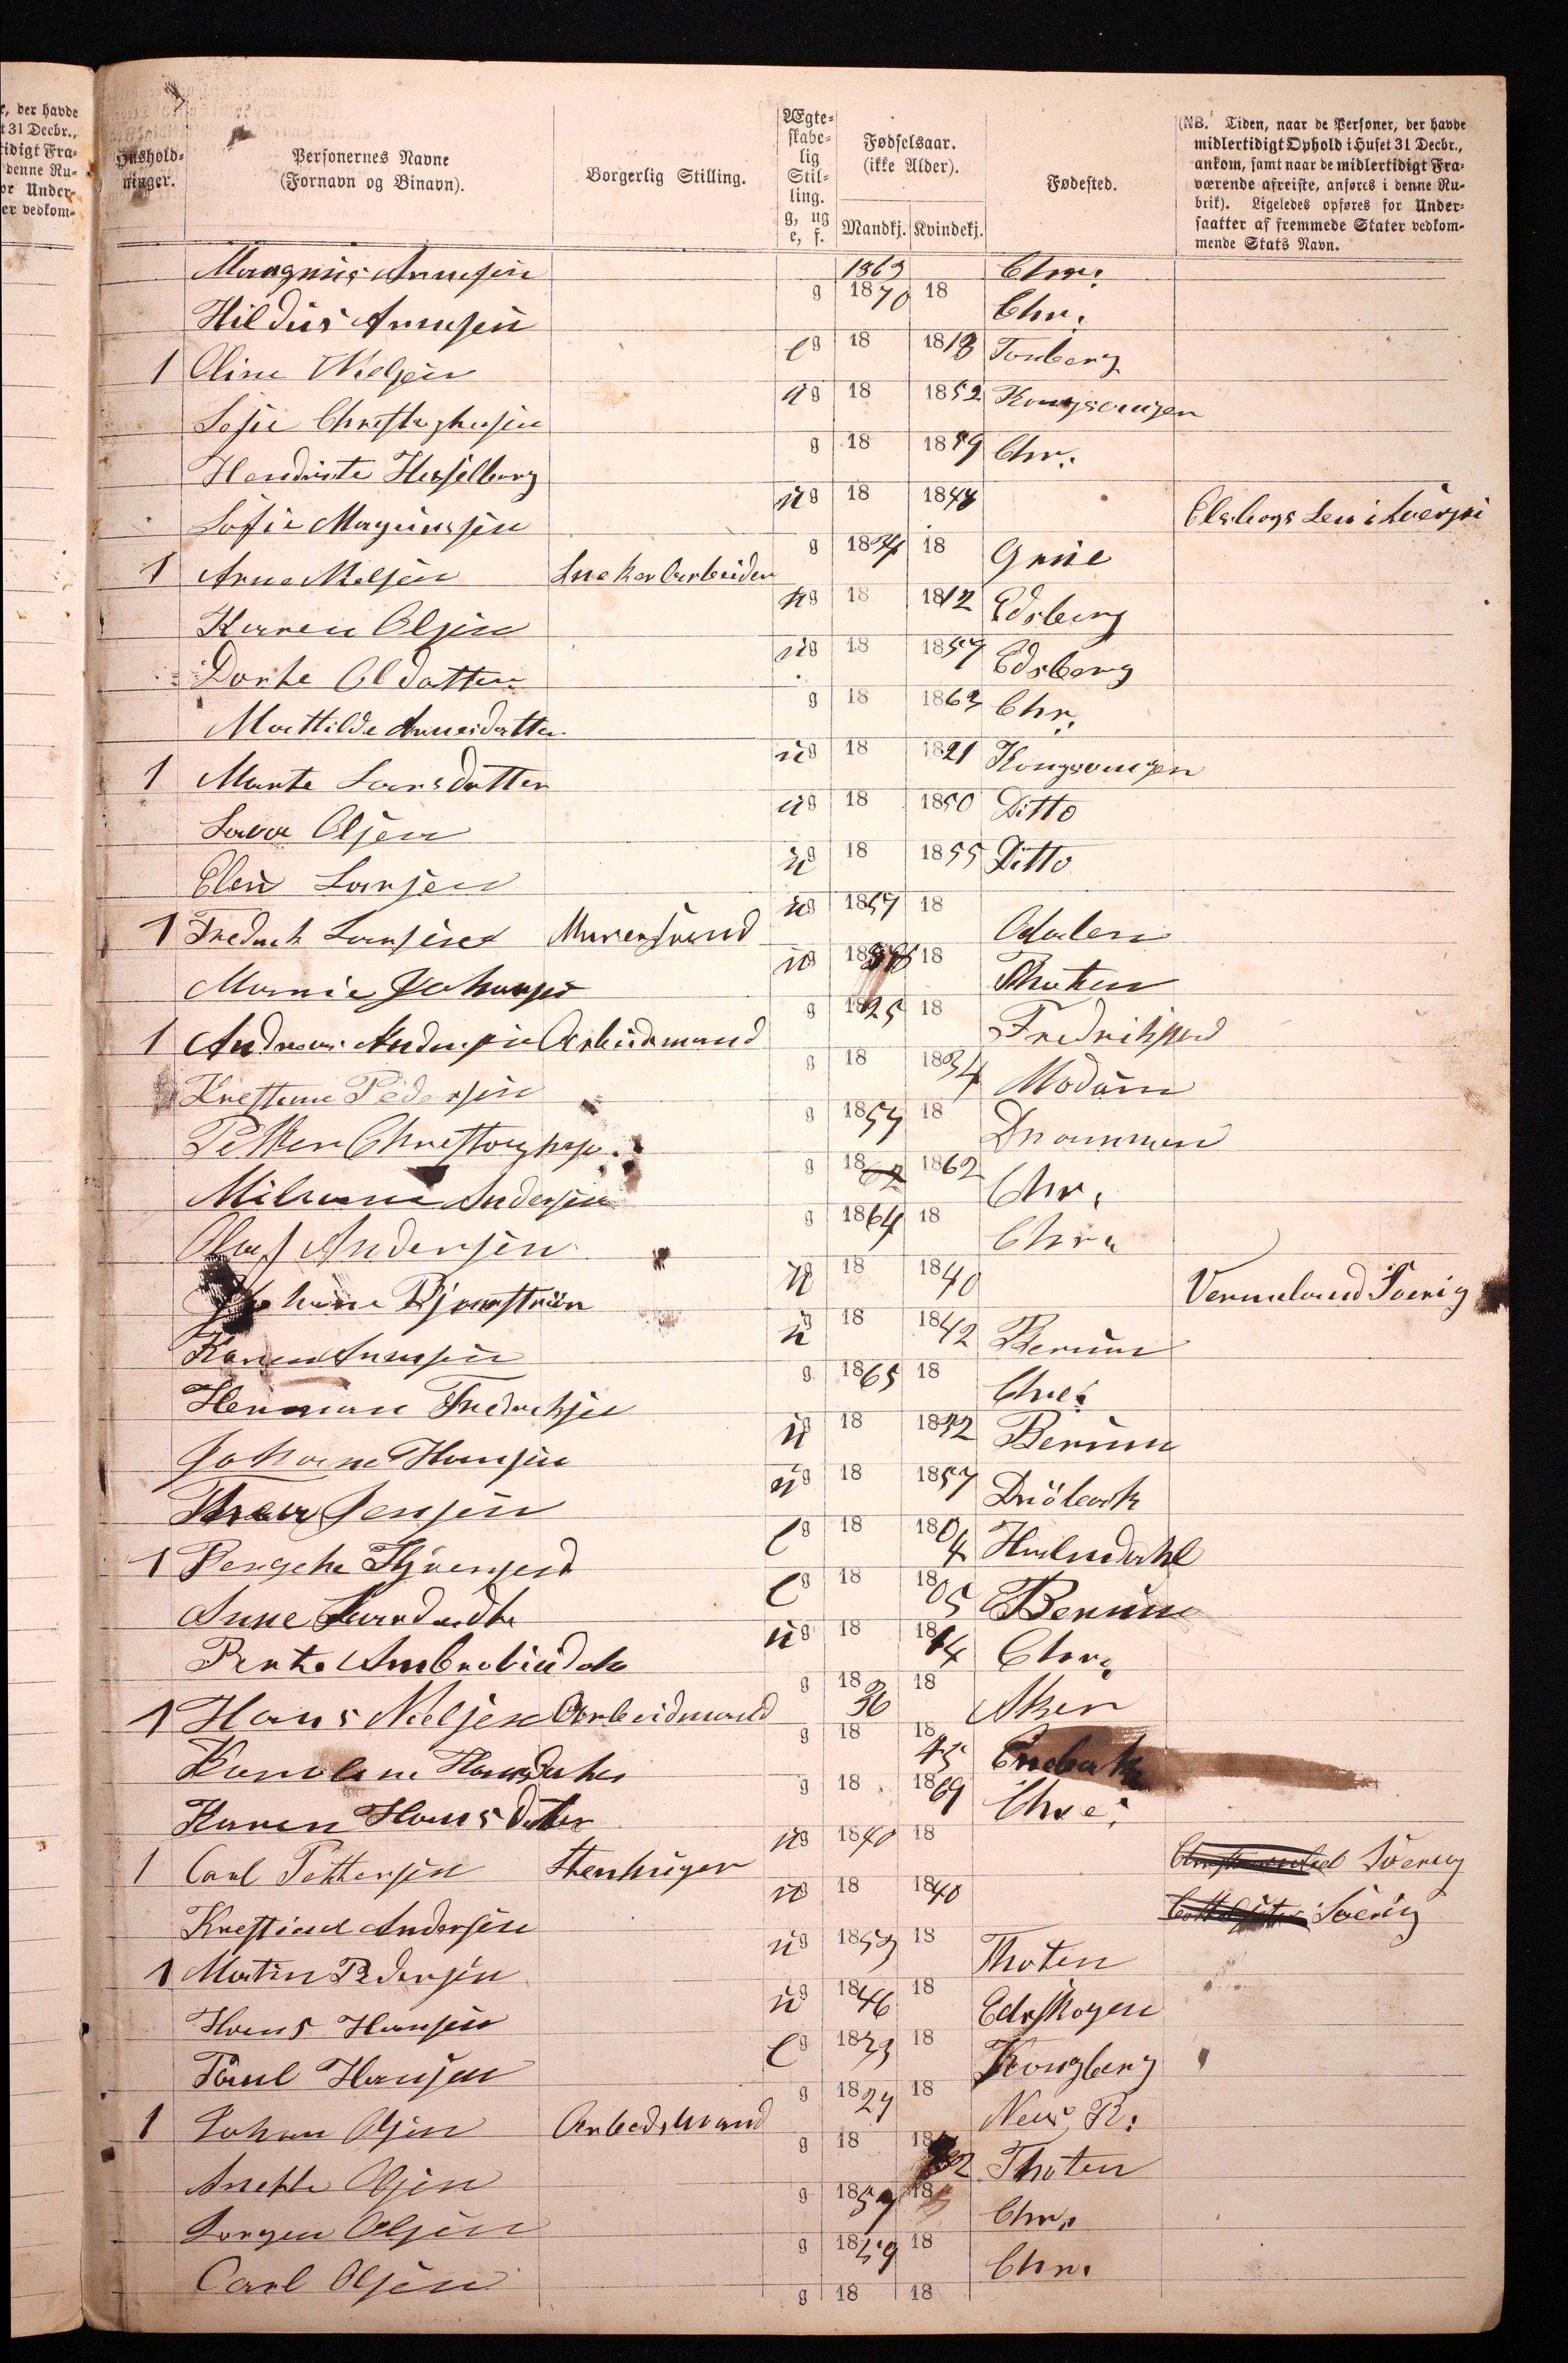 r, der havde
t 31 Decbr.,
tidigt Fra-
denne Ru-
or Under-
er vedkom-
Hushold-
ninger.
Personernes Navne
(Fornavn og Binavn).
Borgerlig Stilling.
Ægte-
skabe-
lig
Stil-
ling.
g, ug
e, f.
Fødselsaar.
(ikke Alder).
Mandkj. Kvindekj.
Fødested.
(NB. Tiden, naar de Personer, der havde
midlertidigt Ophold i Huset 31 Decbr.,
ankom, samt naar de midlertidigt Fra-
værende afreiste, anføres i denne Ru-
brik). Ligeledes opføres for Under-
saatter af fremmede Stater vedkom-
mende Stats Navn.
Magnus Arnesen 1863 Chr.
Hildus Arnesen g 1870 18 Chr.
1 Oline Nielsen e g 18 18 Tonberg
Sofie Christophersen u g 18 1852 Kongsvingen
Hendrikte Hesselberg g 18 1859 Chr.
Sofie Magnussen u g 18 1844 Elsborgs Len i Sverri
1 Arne Nelsen Sneker Arbeider g 18 18 Grue
Karen Olsen u g 18 1812 Edsberg
Dorte Oldatter u g 18 1857 Edsberg
Mathilde Arnesdatter g 18 1863 Chr.
1 Marte Larsdatter u g 18 1821 Kongsvingen
Lava Olsen u g 18 1850 Ditto
Elen Larsen u g 18 1855 Ditto
1 Fredrek Larsen Murersvend u g 1857 18 Odalen
Johansen u g 18 18 Thoten
1 Andreas Andersen Arbeidmand g 1825 18 Fredrikstad
Krestine Pedersen g 18 1834 Modum
Petter Christophers. g 1857 18 Drammen
Andersen g 18 1862 Chr.
Oluf Andersen g 1864 18 Chr.
Johanne Bjørnstrøm u g 18 1840 Vermeland Sverig
Karen Arnesen u g 18 1842 Berum
Herman Fredreksen g 1865 18 Chr.
Johanne Hansen u g 18 18 Berum
Thea Jensen u g 18 1857 Drøbak
1 e g 18 1804 Hurdahl
Anne e g 18 1805 Berum
Berte u g 18 18 Chr.
1 Hans Nielsen Arbeidmand g 1836 18 Aker
Karoline Hansdatter g 18 1845 Enebak
Karen Hans datter g 18 1869 Chr.
1 Carl Pettersen Stenhuger u g 1840 18 Sverig
Krestian Andersen u g 18 1840 Sverig
1 Martin Pedersen u g 1853 18 Thoten
Hans Hansen u g 1846 18 Edsskogen
Paul Hansen e g 1833 18 Kongberg
1 Johan Olsen Arbedsmand g 18 18 Nes R.
Anethe Olsen g 18 18 Thoten
Jørgen Olsen g 1857 18 Chr.
Carl Olsen g 1859 18 Chr.
g 18 18